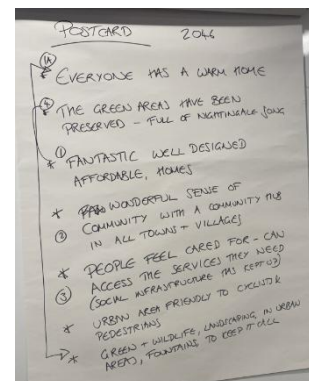 POSTCARD 2046
1A
* EVERYONE HAS A WARM HOME
4
* THE GREEN AREAS HAVE BEEN
PRESERVED - FULL OF NIGHTINGALE SONG
1
* FANTASTIC WELL DESIGNED
AFFORDABLE, HOMES
* WONDERFUL SENSE OF
2 COMMUNITY WITH A COMMUNITY HUB
IN ALL TOWNS + VILLAGES
* PEOPLE FEEL CARED FOR - CAN
3 ACCESS THE SERVICES THEY NEED
(SOCIAL INFRASTRUCTURE HAS KEPT UP)
* URBAN AREA FRIENDLY TO CYCLISTS &
PEDESTRIANS
* GREEN + WILDLIFE, LANDSCAPING, IN URBAN
AREAS, FOUNTAINS TO KEEP IT